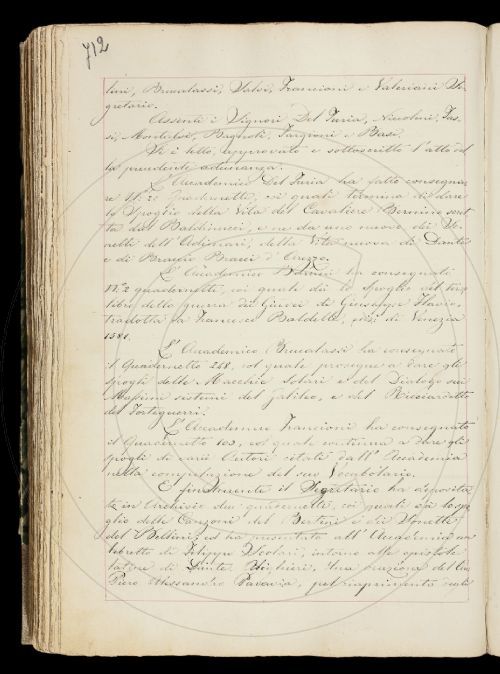 712
lini, Brucalassi, Salvi, Francioni e Valeriani Se-
gretario.
Assenti i Signori Del Furia, Niccolini, Tas-
si, Montalvi, Bagnoli, Targioni e Basi.
Si è letto, approvato e sottoscritto l'atto del-
la precedente adunanza.
L'Accademico Del Furia ha fatto consegna-
re N.° 20 Quadernetti, coi quali termina di dare
lo Spoglio della Vita del Cavaliere Bernino scrit-
ta dal Baldinucci, e ne da uno nuovo di
dell' della Vita nuova di Dante
e di Braccio Bracci d'Arezzo.
L'Accademico ha consegnati
N.° 2 quadernetti, coi quali dà lo spoglio del
libro della guerra dei Giudei di Giuseppe Flavio,
tradotta da Francesco Baldelli, ediz. di Venezia
1581.
L'Accademico Brucalassi ha consegnato
il Quadernetto 268, col quale prosegue a dare gli
spogli delle Macchie Solari e del Dialogo sui
Massimi sistemi del Galileo, e del Ricciardetto
del Forteguerri.
L'Accademico Francioni ha consegnato
il Quadernetto 103, col quale continua a dare gli
spogli di varii Autori citati dall'Accademia
nella compilazione del suo Vocabolario.
E finalmente il Segretario ha deposita-
te in Archivio due quadernetti, coi quali dà lo spo-
glio delle Canzoni del Bertini e dei Sonetti
del Bellini; ed ha presentato all'Accademia un
libretto di Filippo Scolari, intorno alle epistole
latine di Dante Alighieri. Una orazione del Cav.
Piero Alessandro Paravia, pel